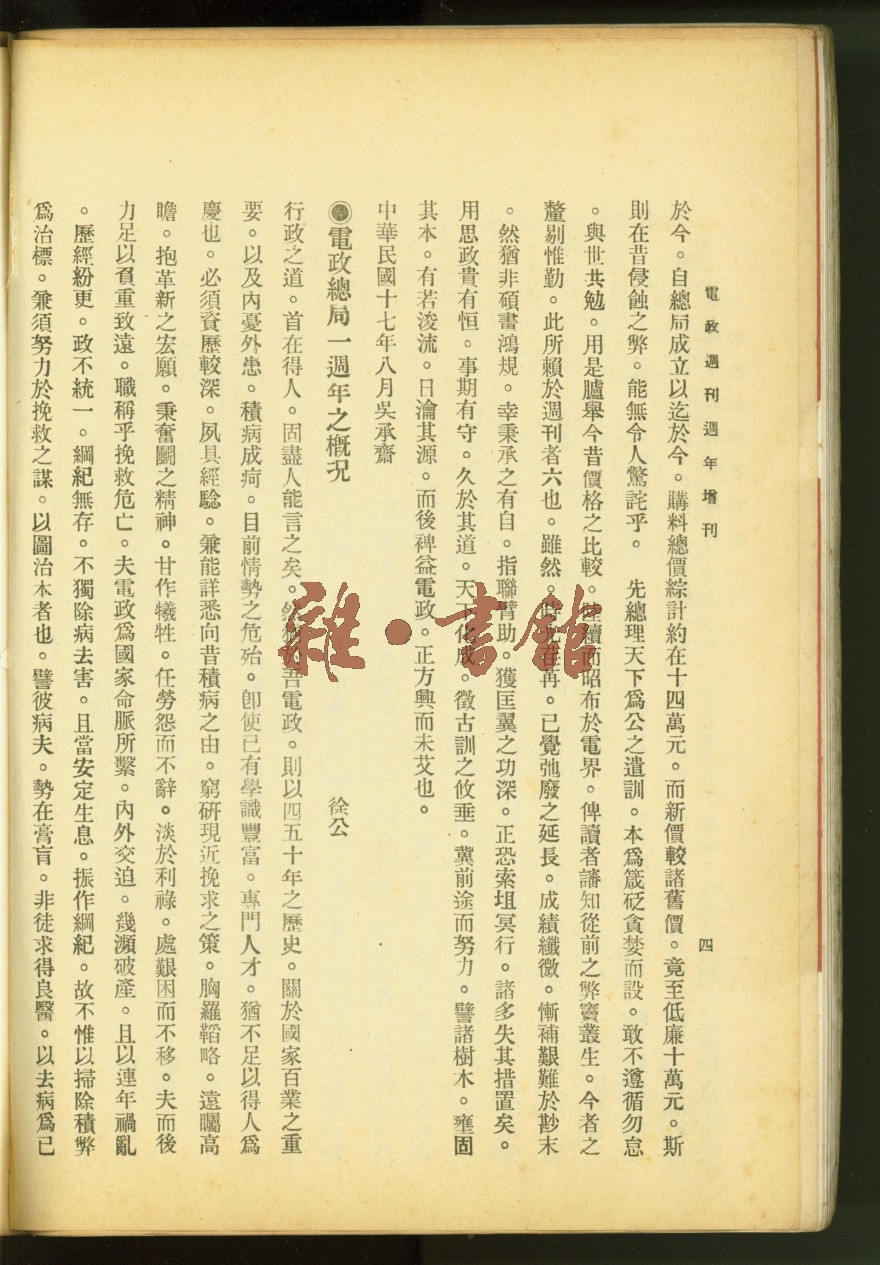 電政週刊週年增刊
四
於今。自總局成立以迄於今。購料總價綜計約在十四萬元。而新價較諸舊價。竟至低廉十萬元。斯
則在昔侵蝕之弊。能無令人驚詫乎。　先總理天下爲公之遺訓。本爲箴砭貪婪而設。敢不遵循勿怠
。與世共勉。用是臚舉今昔價格之比較。陸續而昭布於電界。俾讀者讅知從前之弊竇叢生。今者之
釐剔惟勤。此所賴於週刊者六也。雖然。時光荏苒。已覺弛廢之延長。成績纖微。慚補艱難於尠末
。然猶非碩畫鴻規。幸秉承之有自。指聯臂助。獲匡翼之功深。正恐索埴冥行。諸多失其措置矣。
用思政貴有恒。事期有守。久於其道。天下化成。徵古訓之攸垂。冀前途而努力。譬諸樹木。壅固
其本。有若浚流。日瀹其源。而後裨益電政。正方興而未艾也。
中華民國十七年八月吳承齋
◉電政總局一週年之概况
徐公
行政之道。首在得人。固盡人能言之矣。然獨於吾電政。則以四五十年之歷史。關於國家百業之重
要。以及內憂外患。積病成疴。目前情勢之危殆。卽使已有學識豐富。專門人才。猶不足以得人爲
慶也。必須資歷較深。夙具經驗。兼能詳悉向昔積病之由。窮研現近挽求之策。胸羅韜略。遠矚高
瞻。抱革新之宏願。秉奮鬭之精神。甘作犧牲。任勞怨而不辭。淡於利祿。處艱困而不移。夫而後
力足以負重致遠。職稱乎挽救危亡。夫電政爲國家命脈所繫。內外交迫。幾瀕破產。且以連年禍亂
。歷經紛更。政不統一。綱紀無存。不獨除病去害。且當安定生息。振作綱紀。故不惟以掃除積弊
爲治標。兼須努力於挽救之謀。以圖治本者也。譬彼病夫。勢在膏肓。非徒求得良醫。以去病爲已
雜·書館